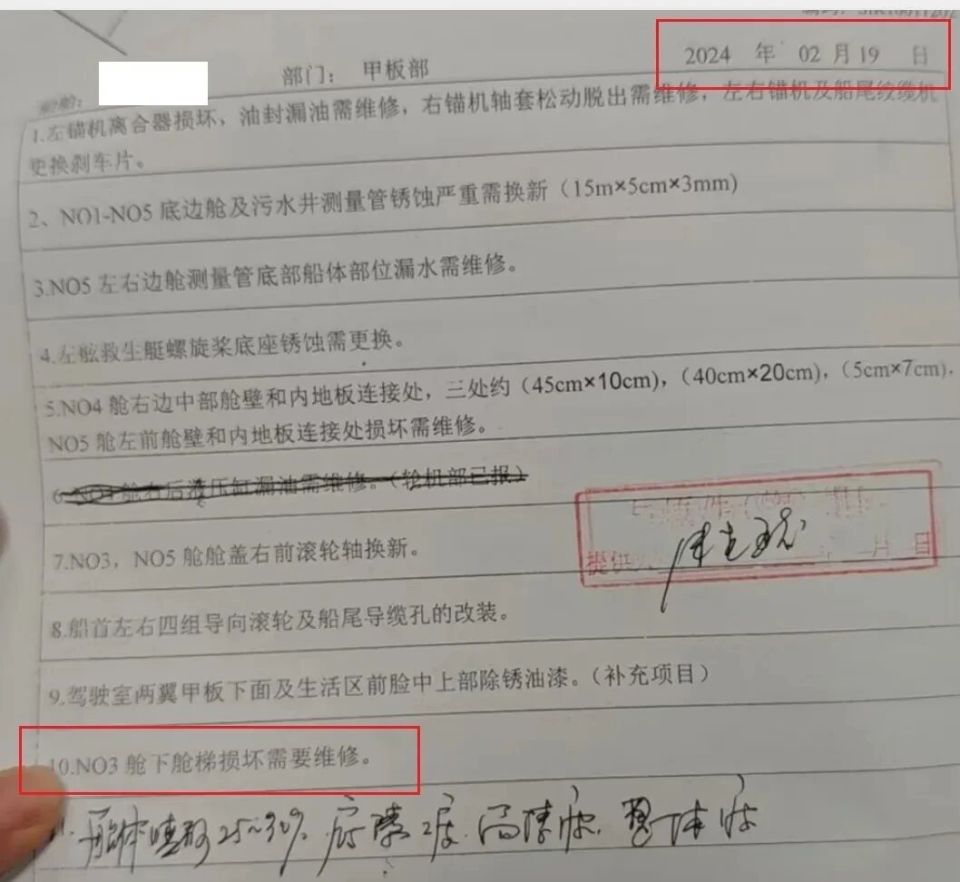 部门： 甲板部
2024 年 02 月 19 日
1.左锚机离合器损坏，油封漏油需维修，右锚机轴套松动脱出需维修，左右锚机及船尾绞缆机
更换刹车片。
2、NO1-NO5 底边舱及污水井测量管锈蚀严重需换新（15m×5cm×3mm）
3.NO5 左右边舱测量管底部船体部位漏水需维修。
4.左舷救生艇螺旋桨底座锈蚀需更换。
5.NO4 舱右边中部舱壁和内地板连接处，三处约（45cm×10cm），（40cm×20cm），（5cm×7cm）.
NO5 舱左前舱壁和内地板连接处损坏需维修。
6.NO4 舱右后液压缸漏油需维修。（轮机部已报）
7.NO3，NO5 舱舱盖右前滚轮轴换新。
提供 月 日
8.船首左右四组导向滚轮及船尾导缆孔的改装。
9.驾驶室两翼甲板下面及生活区前脸中上部除锈油漆。（补充项目）
10.NO3 舱下舱梯损坏需要维修。
25~30%